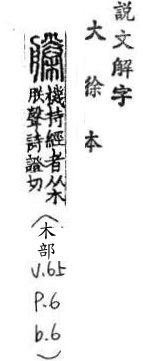 説文解字
大徐本
榺
機持經者从木
朕聲詩證切
(木部
V.65
P.6
b.6)